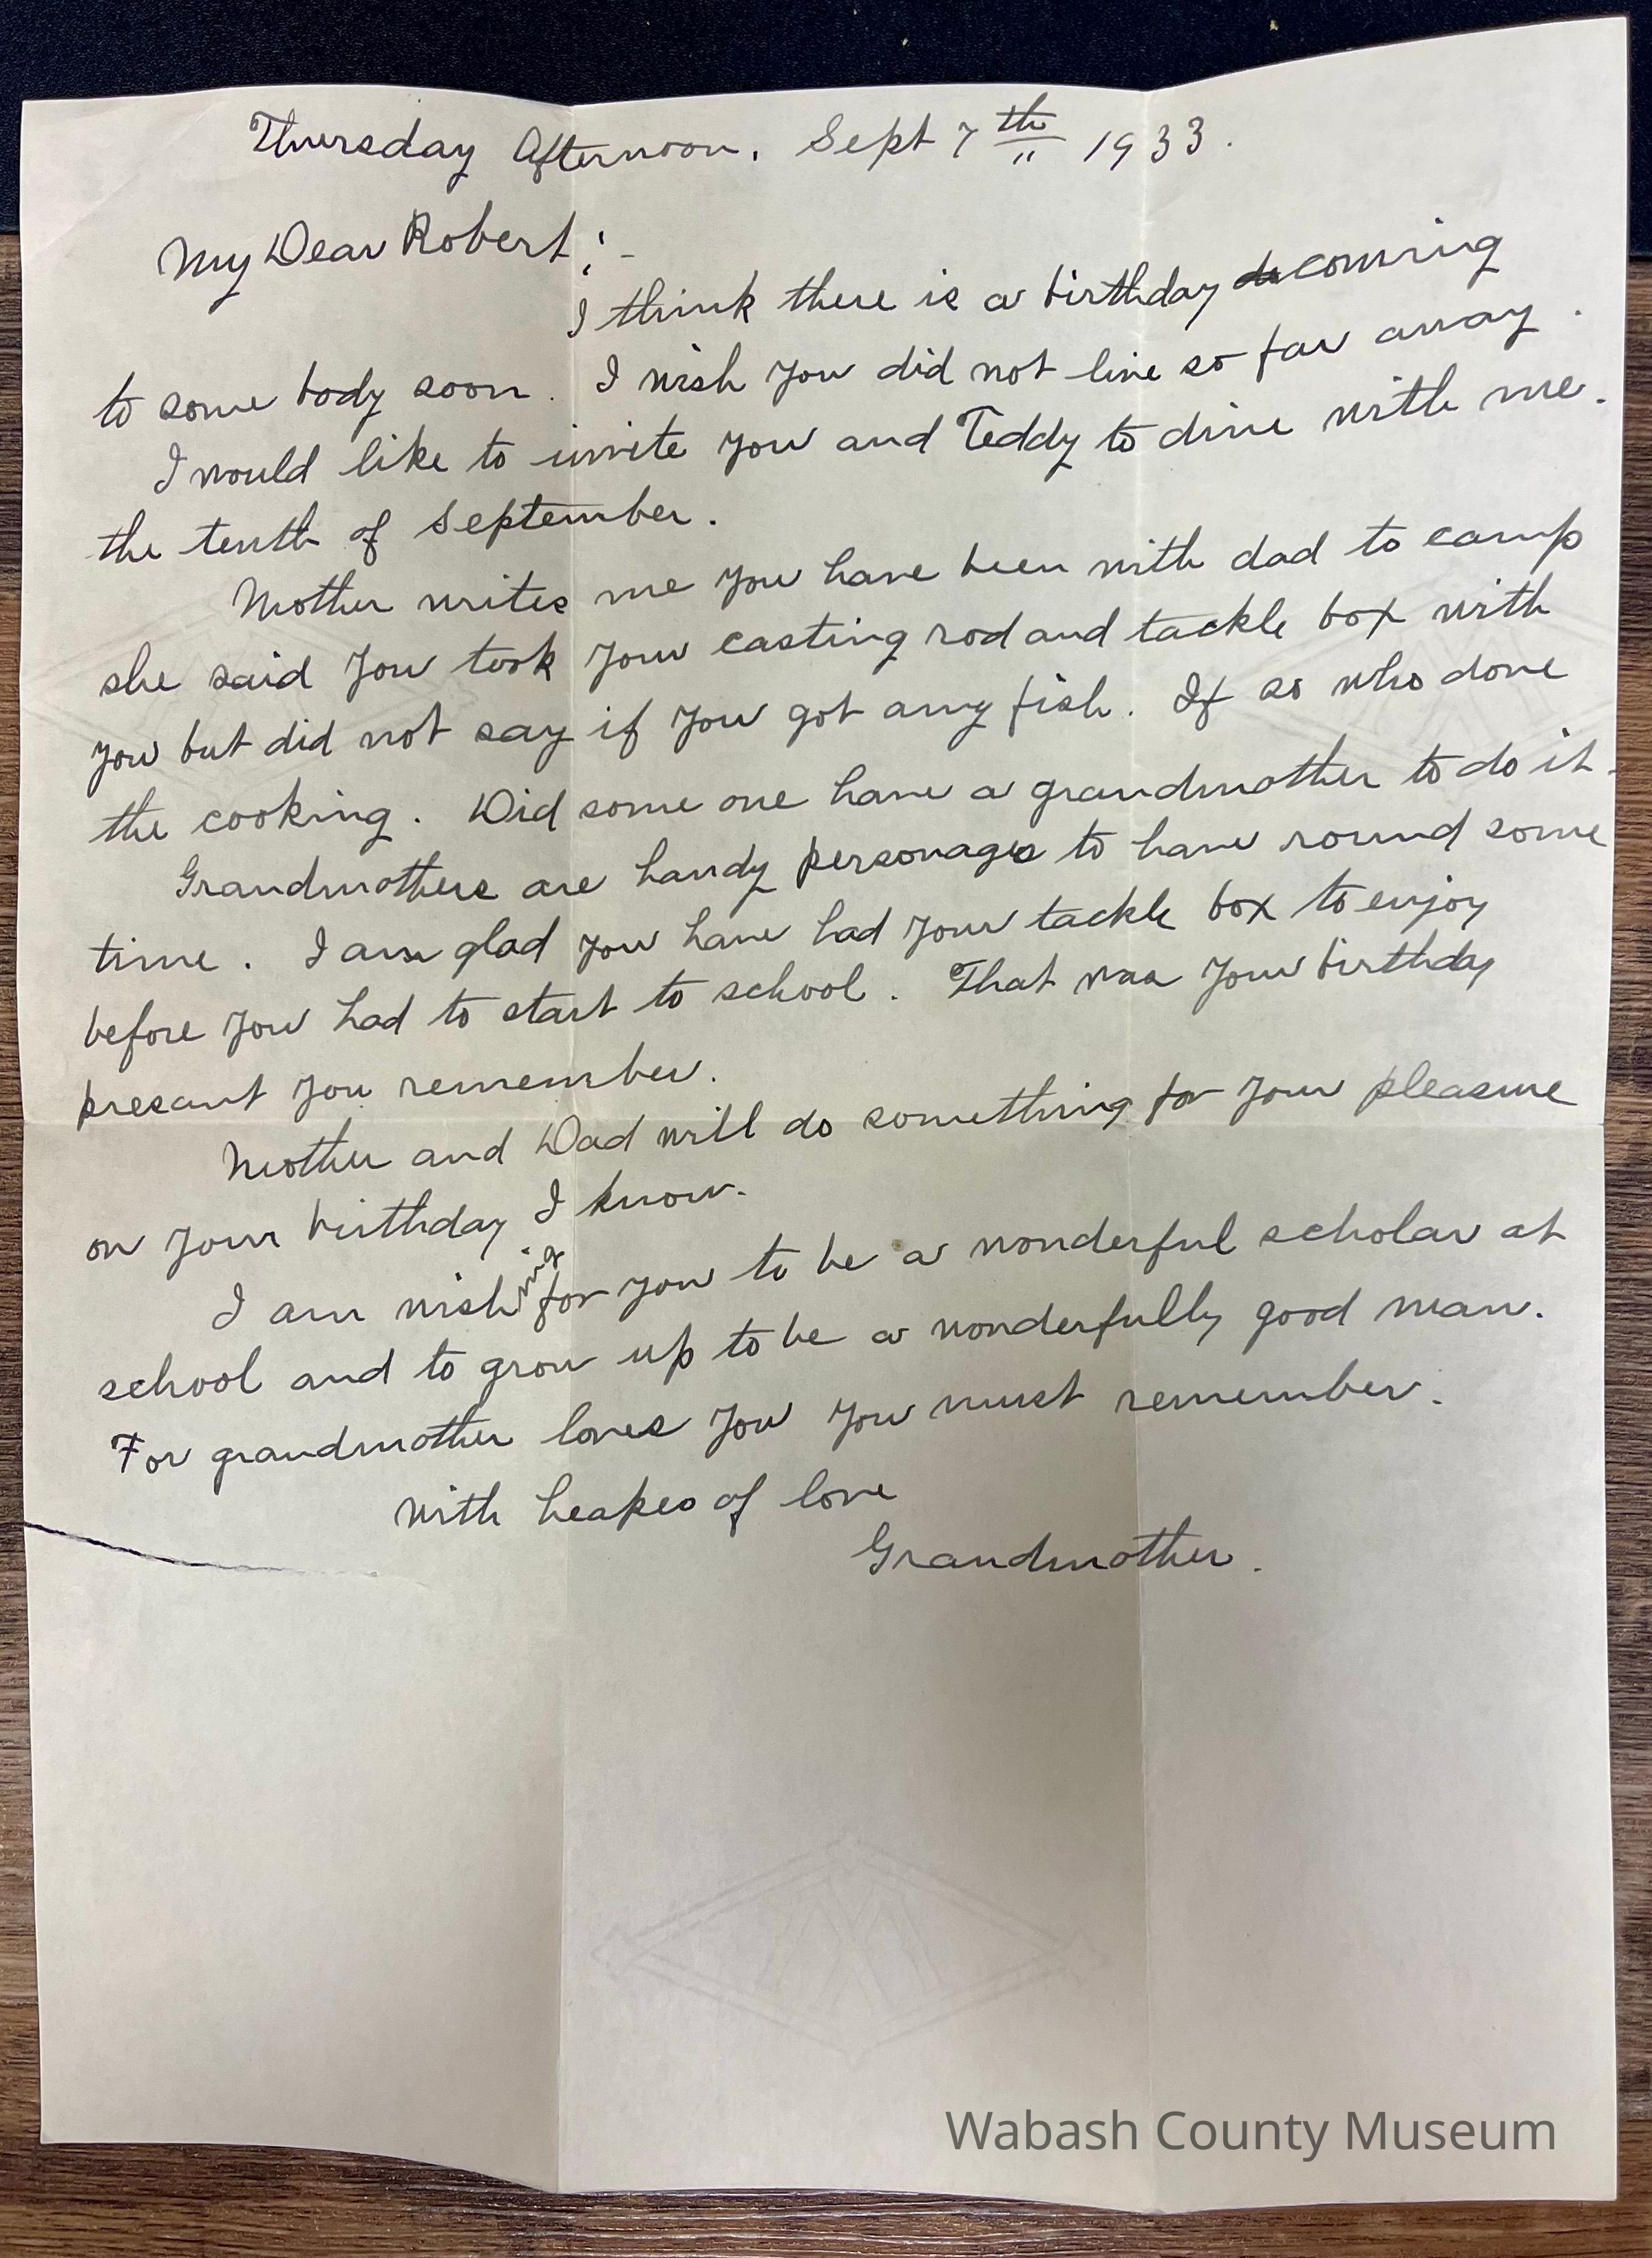 Thursday Afternoon. Sept 7th 1933.
My Dear Robert;-
I think there is a birthday coming
to some body soon. I wish you did not live so far away.
I would like to invite you and Teddy to dine with me.
the tenth of September.
Mother writes me you have been with dad to camp
she said you took your casting rod and tackle box with
you but did not say if you got any fish. If so who done
the cooking. Did some one have a grandmother to do it.
Grandmothers are handy personages to have round some
time. I am glad you have had your tackle box to enjoy
before you had to start to school. That was your birthday
presant you remember.
Mother and Dad will do something for your pleasure
on your birthday I know.
I am wishing for you to be a wonderful scholar at
school and to grow up to be a wonderfully good man.
For grandmother loves you you must remember.
with heapes of love
Grandmother.
Wabash County Museum